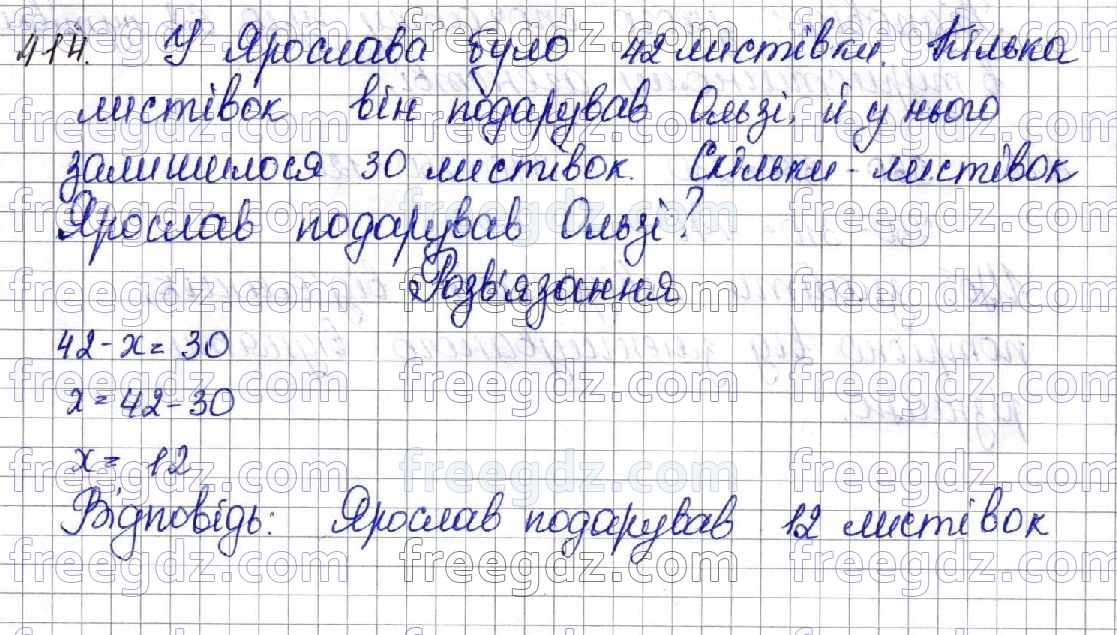 414. У Ярослава було 42 листівки. Кілька
листівок він подарував Ользі, й у нього
залишилося 30 листівок. Скільки листівок
Ярослав подарував Ользі?
Розв'язання
42 - x = 30
x = 42 - 30
x = 12
Відповідь: Ярослав подарував 12 листівок
freegdz.com